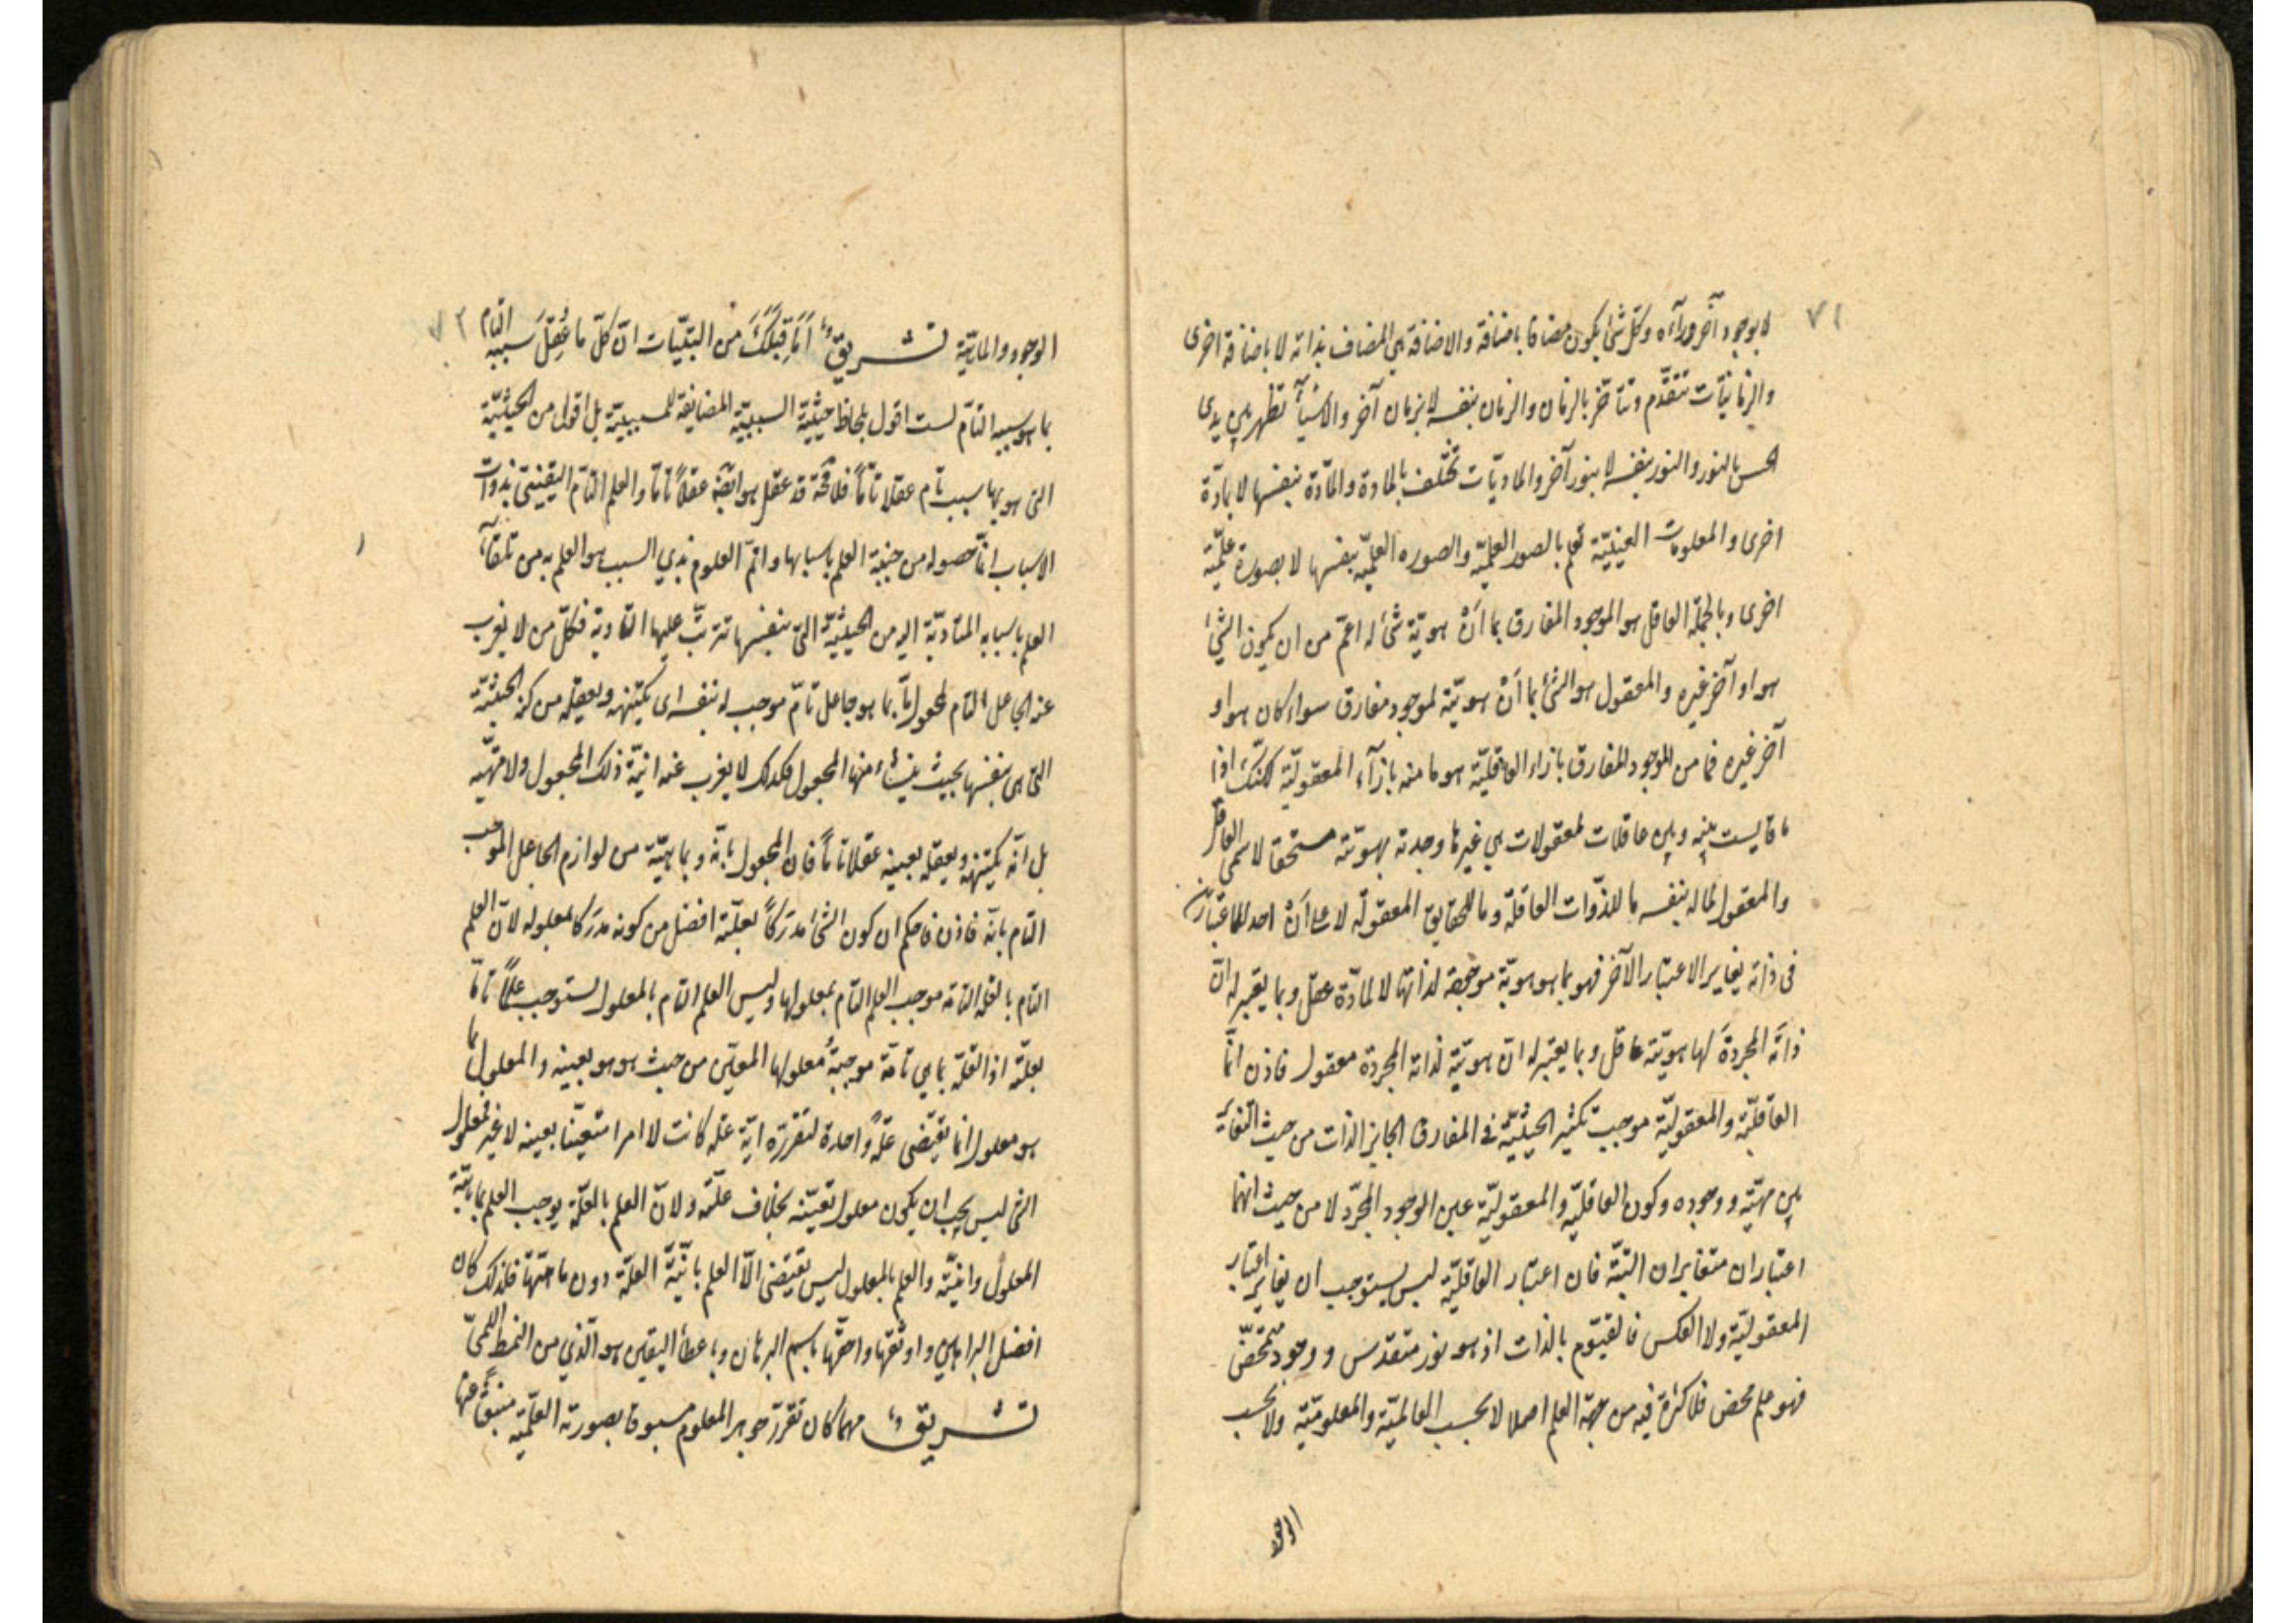 ٧١
لا بوجود آخر ورآءه وكل شئ يكون مضافا باضافة والاضافة هي المضاف بذاته لا باضافة اخرى
والزمانيّات تتقدّم وتتأخّر بالزمان والزمان بنفسه لا بزمان آخر والاشيآء تظهر بين يدى
الحس بالنور والنور بنفسه لا بنور آخر والماديّات تختلف بالمادة والمادّة بنفسها لا بمادّة
اخرى والمعلومات العينيّة تعلم بالصور العلميّة والصوره العلميّة بنفسها لا بصورة علميّة
اخرى وبالجملة العاقل هو الموجود المفارق بما أنّ هويّة شئ له اعمّ من ان يكون الشئ
هو او آخر غيره والمعقول هو الشئ بما أنّ هويّة لموجود مفارق سواء كان هو او
آخر غيره فما من الموجود المفارق بازاء العاقليّة هو ما منه بازآء المعقوليّة لكنّك اذا
ما قايست بينه وبين عاقلات لمعقولات هي غيرها وجدته بهويّته مستحقا لاسمى العاقل
والمعقول لما له بنفسه ما للذّوات العاقلة وما للحقايق المعقولة لا على أنّ احد الاعتبارين
فى ذاته يغاير الاعتبار الآخر فهو بما هو هويّة موجهة لذاتها لا لمادّة عقل وبما يعتبر له انّ
ذاتَه المجردةَ لها هويّته عاقل وبما يعتبر له انّ هويّته لذاته المجردة معقول فاذن انّما
العاقليّة والمعقوليّة موجبة تكثير الحيثيّة فى المفارق الجايز الذات من حيث التغاير
بين مهيّته ووجوده وكون العاقليّة والمعقوليّة عين الوجود المجرّد لا من حيث انهما
اعتباران متغايران البتّة فان اعتبار العاقليّة ليس يستوجب ان يغاير اعتبار
المعقوليّة ولا العكس فالقيّوم بالذات اذ هو نور متقدس ووجود متمحّض
فهو علم محض فلا كثرة فيه من جهة العلم اصلا لا بحسب العالميّة والمعلوميّة ولا بحسب
الوجود
٧٢
الوجود والماهيّة تشريقٌ أمَا قِبَلَكَ من البتيّات انّ كلّ ما عُقِلَ سببه التام
بما هو سببه التامّ لست اقول بلحاظ حيثيّة السببيّة المضايفة للمسببيّة بل اقول من الحيثيّة
التى هو بها سبب تام عقلا تامّاً فلا محة قد عقل هو ايضاً عقلاً تامّا والعلم التامّ اليقينى بذوات
الاسباب انّما حصوله من جنبة العلم باسبابها واتمّ العلوم بذي السبب هو العلم به من تلقآء
العلم باسبابه المتادّيّة اليه من الحيثيّة التى بنفسها تترتّب عليها التأدية فكلّ من لا يعزب
عنه الجاعل التام لمجعول مّا بما هو جاعل تامّ موجب له بنفسه اى يكتنهه ويعقله من كنه الحيثيّة
التى هى بنفسها بحيث ينشأ منها المجعول فكذلك لا يعزب عنه انيّة ذلك المجعول ولا مهيّته
بل انّه يكتنهه ويعقله بعينه عقلا تامّاً فان المجعول بانّه وبماهيّته من لوازم الجاعل الموجب
التام بانّه فاذن فاحكم ان كون الشئ مدرَكاً بعلّته افضل من كونه مدرَكا بمعلوله لانّ العلم
التام بالعلّة التامّة موجب العلم التام بمعلولها وليس العلم التام بالمعلول يستوجب علمًا تامّا
بعلّته اذ العلّة بما هي تامّة موجبةُ معلولها المعيّن من حيث هو هو بعينه والمعلول بما
هو معلول انما يقتضى علّةً واحدة لتقرره ايّة علّة كانت لا امرا متعيّنا بعينه لا غير فمعلول
الشئ ليس يجب ان يكون معلول تعيّنه بخلاف علّته ولانّ العلم بالعلّة يوجب العلم بماهيّة
المعلول وانيّته والعلم بالمعلول ليس يقتضى الّا العلم بانيّة العلّة دون ماهيّتها فلذلك كان
افضل البراهين واوثقها واحقّها باسم البرهان وباعطآء اليقين هو الّذي من النمط اللّمىّ
تشريقٌ مهما كان تقرّر جوهر المعلوم مسبوقا بصورته العلميّة منبعثاً عنها